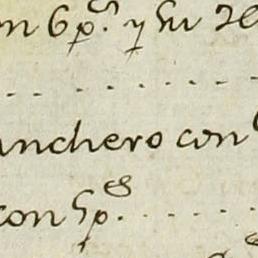 n 6 p.ᵒˢ y su
anchero con
con 5 p.ᵉˢ